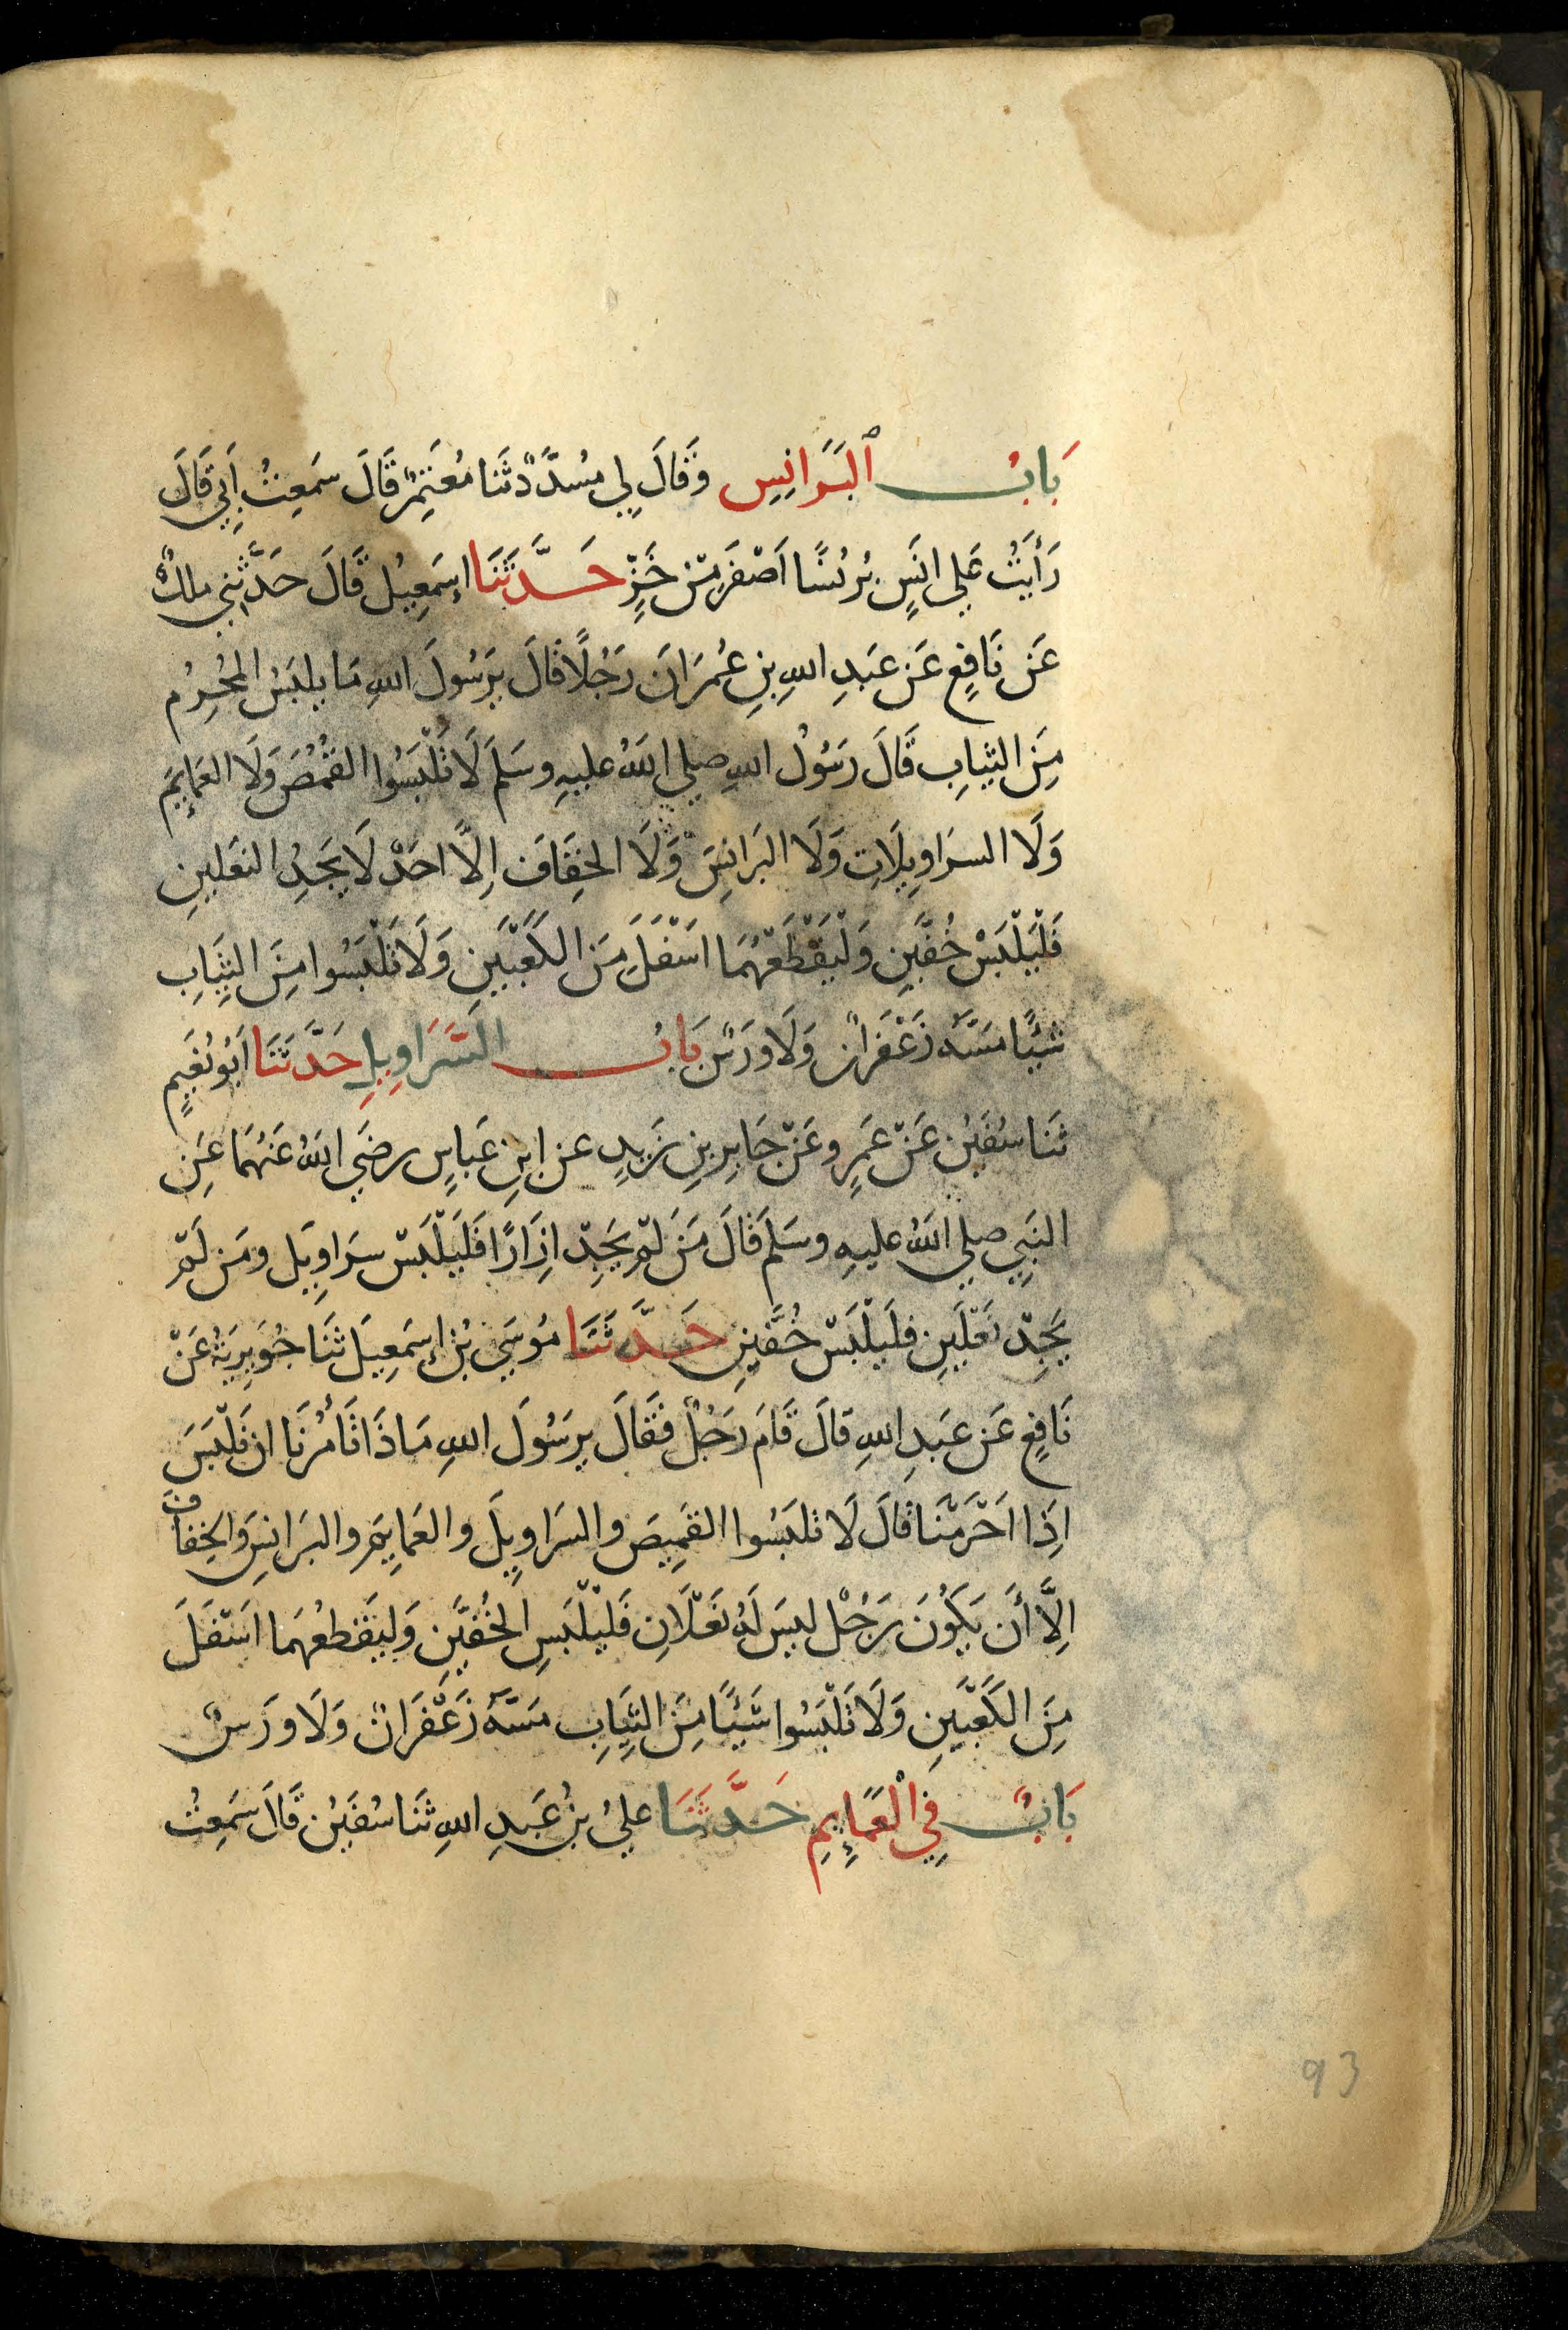 بَابُ ٱلبَرَانِسِ وَقَالَ لِي مُسَدَّدٌ ثَنَا مُعْتَمِرٌ قَالَ سَمِعْتُ أَبِي قَالَ
رَأَيْتُ عَلِي انَسٍ بُرْنُسًا اَصْفَرَ مِنْ خَزٍّ حَدَّثَنَا إسمَعِيلُ قَالَ حَدَّثَنِي ملكٌ
عَن نَافِعٍ عَن عَبدِ اللهِ بنِ عُمَرَ انَ رَجُلًا قَالَ يرَسُولَ اللهِ مَا يلبَسُ المُحْرِمُ
مِنَ الثيابِ قَالَ رَسُولُ اللهِ صلي اللهُ عليهِ وسَلمَ لَا تَلْبَسُوا القُمُصَ وَلَا العَمَايِمَ
وَلَا السرَاوِيلَاتِ وَلَا البَرَانِسَ وَلَا الخِفَافَ اِلَّا احَدٌ لَا يَجِدُ النعَلينِ
فَلْيَلْبَسْ خُفَّينِ وَلْيَقْطَعْهُمَا اسْفَلَ مِنَ الكَعْبَينِ وَلَا تَلْبَسُوا مِنَ الثِيَابِ
شيْئًا مَسَّهُ زَعْفَرانٌ وَلَا وَرَسٌ بَابُ السَّرَاوِيلِ حَدَّثَنَا اَبُو نُعَيمٍ
ثَنَا سُفيَنُ عَنْ عَمرٍو عَنْ جَابِرِ بنِ زَيدٍ عن ابنِ عَباسٍ رضَي اللهُ عَنْهُمَا عَنِ
النَبِي صلي اللهُ عليهِ وسَلمَ قَالَ مَنْ لَمْ يَجِدْ اِزَارًا فَليَلْبَسْ سرَاوِيلَ ومَن لَمْ
يَجِدْ نَعْلَينِ فليَلْبَسْ خُفَّينِ حَدَّثَنَا مُوسَي بْنُ إسمَعِيلَ ثَنَا جُوَيرِيَةُ عَنْ
نَافِعٍ عَن عَبدِ اللهِ قالَ قَامَ رَجُلٌ فَقَالَ يرَسُولَ اللهِ مَاذَا تَأمُرُنَا ان نَلْبَسَ
اِذَا احَرَمْنَا قَالَ لَا تلبَسُوا القَمِيصَ والسرَاوِيلَ والعَمايِمَ والبرَانِسَ وَالخِفافَ
اِلَّا أَن يَكُونَ رَجُلٌ ليسَ لَهُ نَعْلَانِ فَليَلْبَسِ الخُفَّينِ وَليَقطعْهُمَا اسْفَلَ
مِنَ الكَعْبَينِ وَلَا تَلْبَسُوا شَيْئًا مِنَ الثِيَابِ مَسَّهُ زَعْفَرَانٌ وَلَا وَرَسٌ
بَابٌ فِي الْعَمَايِمِ حَدَّثَنَا عليُ بنُ عَبدِ اللهِ ثَنَا سُفيَنُ قَالَ سَمِعْتُ
93